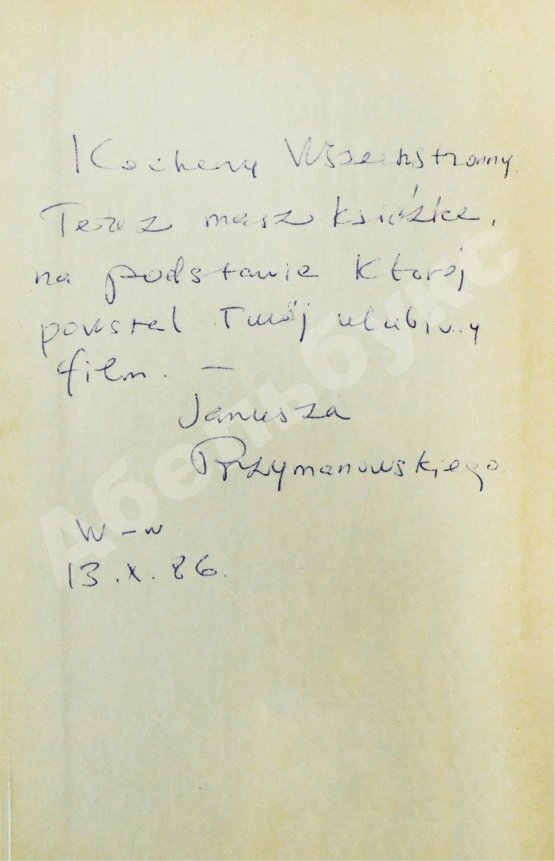 Kochany Wszechstronny.
Teraz masz książkę,
na podstawie której
powstał Twój ulubiony
film. —
Janusza
Przymanowskiego.
W-w
13.X.86.
Абельбукс